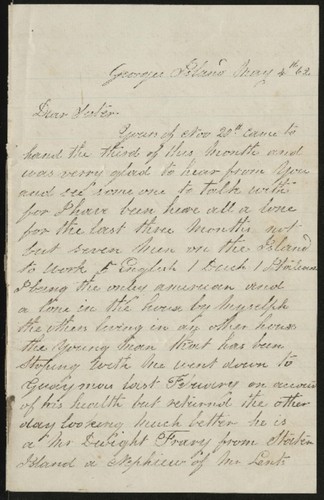 Georges Island May 4th 62
Dear Sister
Yours of Nov 20th came to
hand the third of this Month and
was verry glad to hear from You
and some one to talk with
for I have been hear all a lone
for the last three Months not
but seven Men on the Island
to work 5 English 1 Duch 1 Italian
I being the only american and
a lone in the house by Myselph
the others living in an other house
the Young Man that has been
Stoping with Me went down to
Guaymas last on account
of his health but returned the other
day looking Much better he is
a Mr Dwight from Staten
Island a Nephiew of Mr Lents